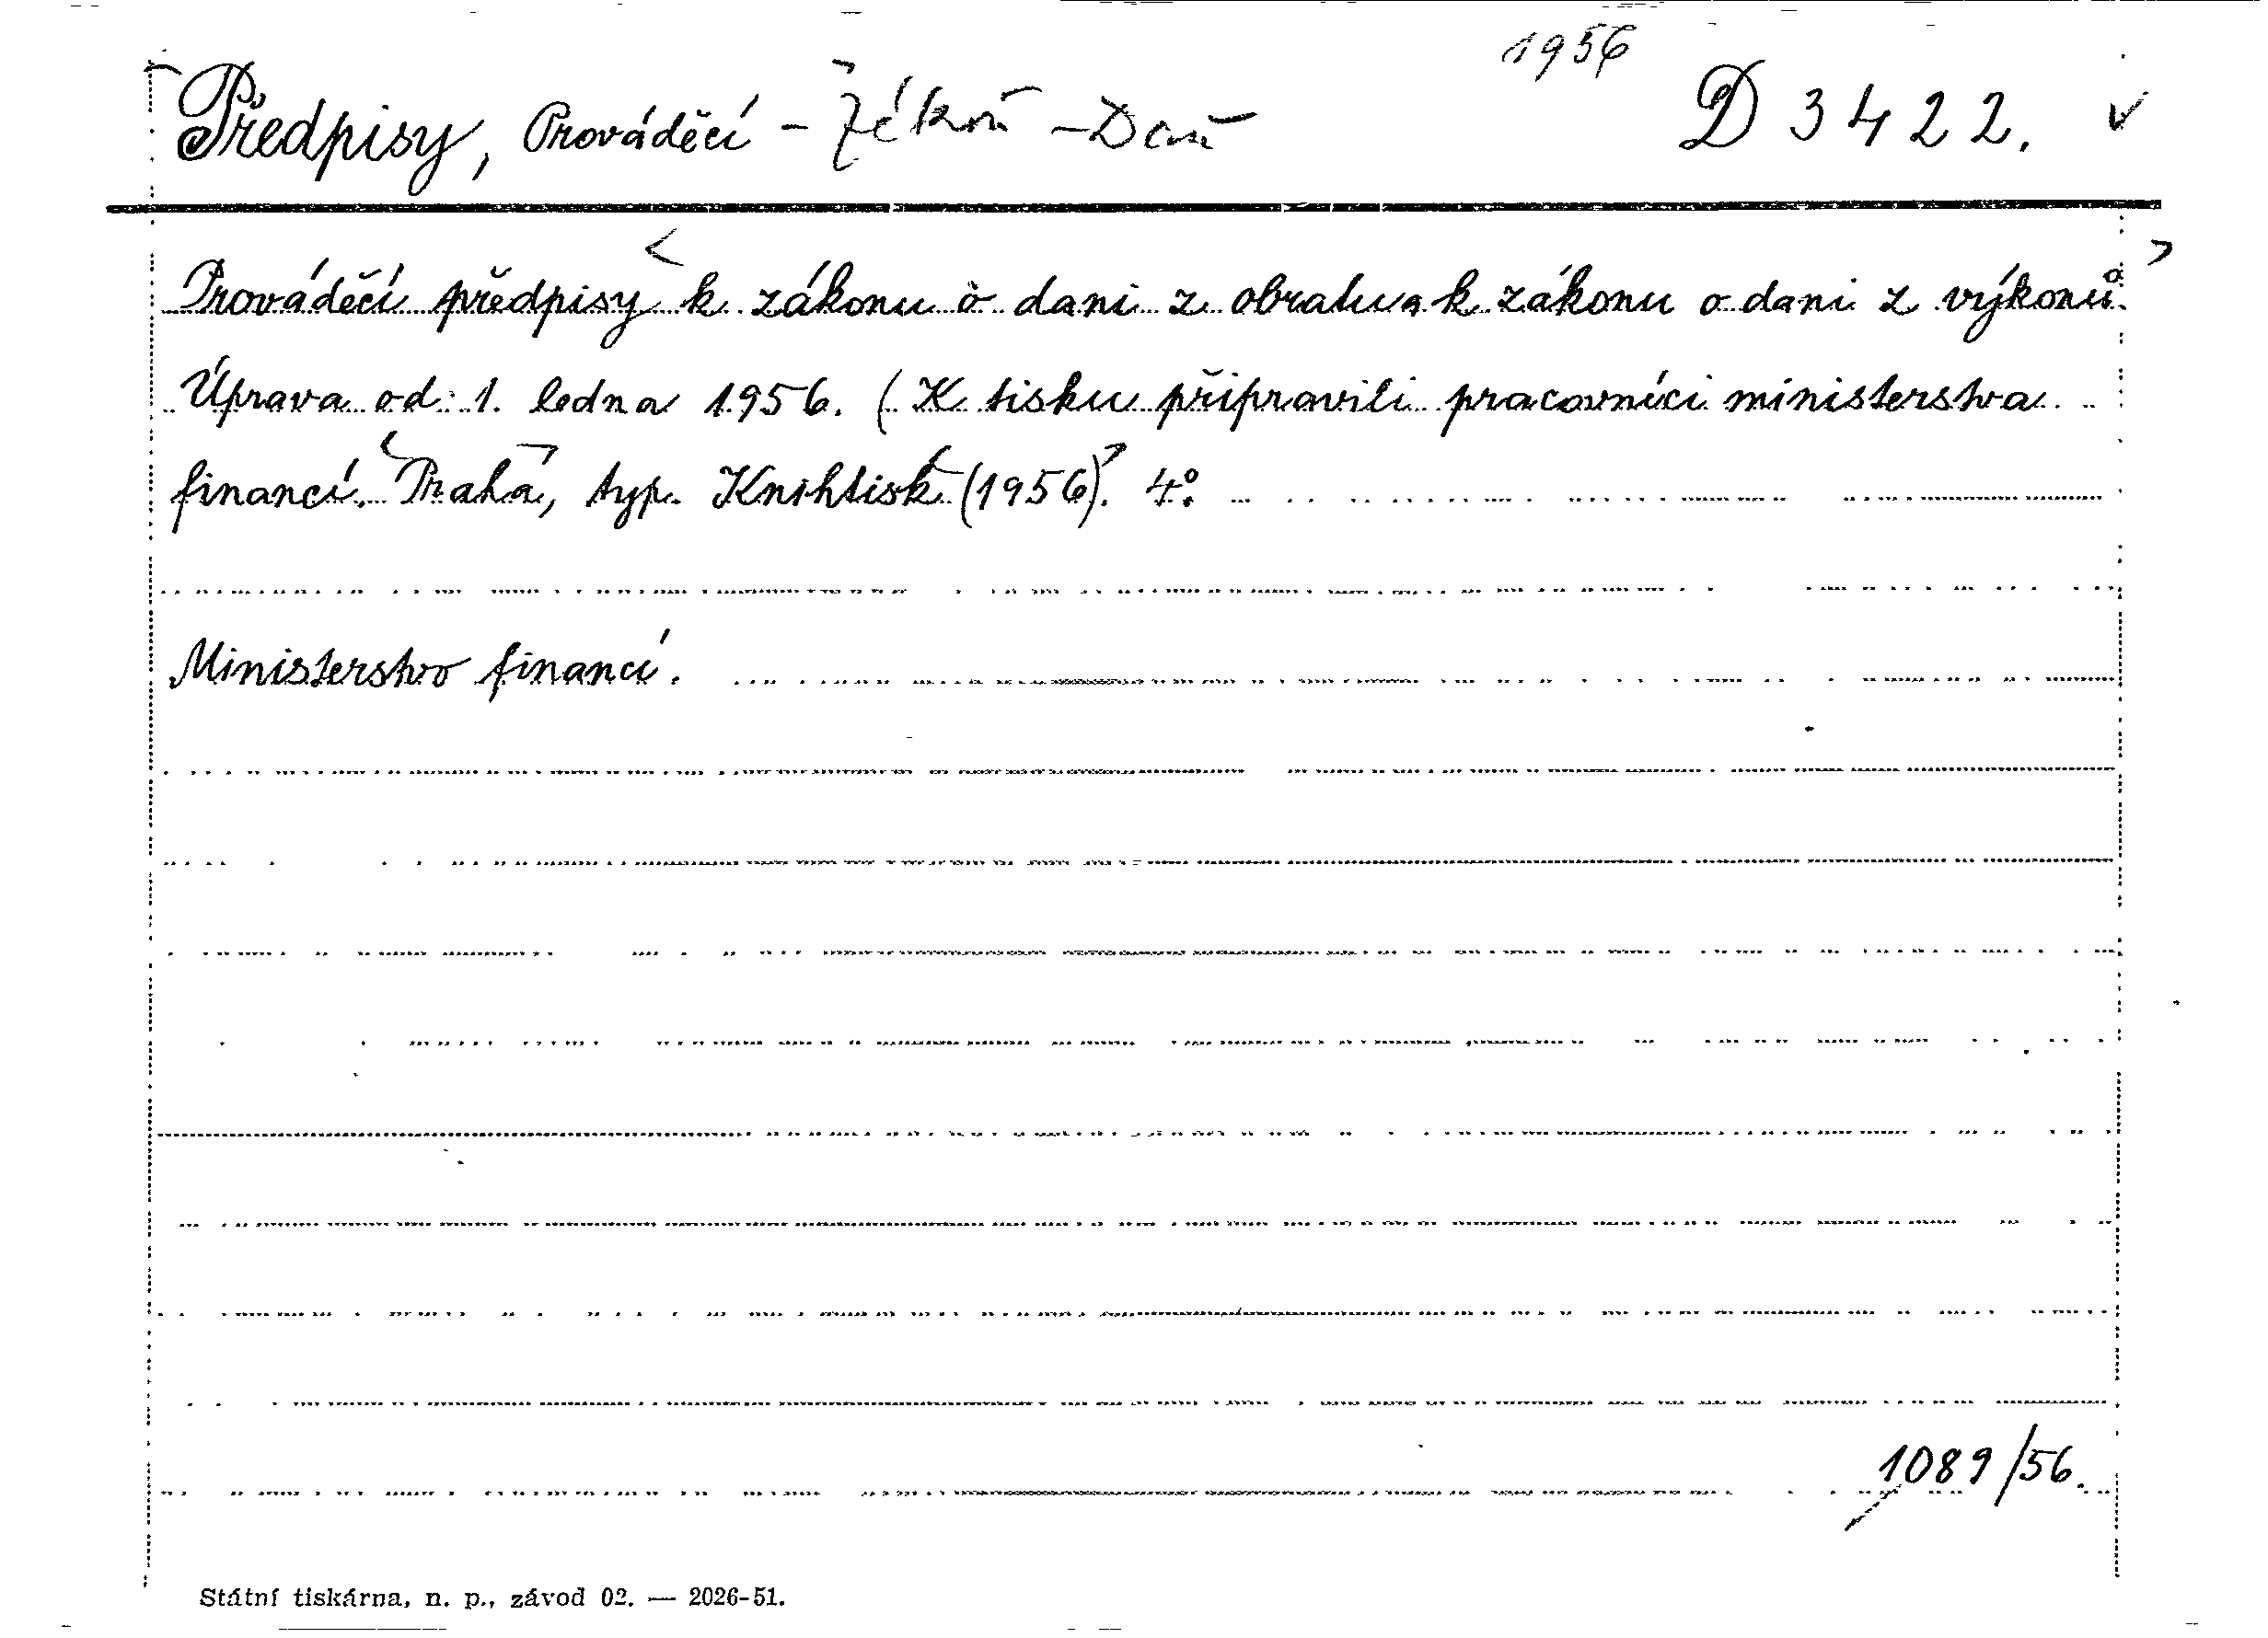 1956
Předpisy, Prováděcí - Zákon - Daň D 3422.
Prováděcí předpisy k zákonu o dani z obratu a k zákonu o dani z výkonů.
Úprava od 1. ledna 1956. (K tisku připravili pracovníci ministerstva
financí. Praha, typ. Knihtisk (1956). 4°.
Ministerstvo financí.
1089/56.
Státní tiskárna, n. p., závod 02. — 2026-51.